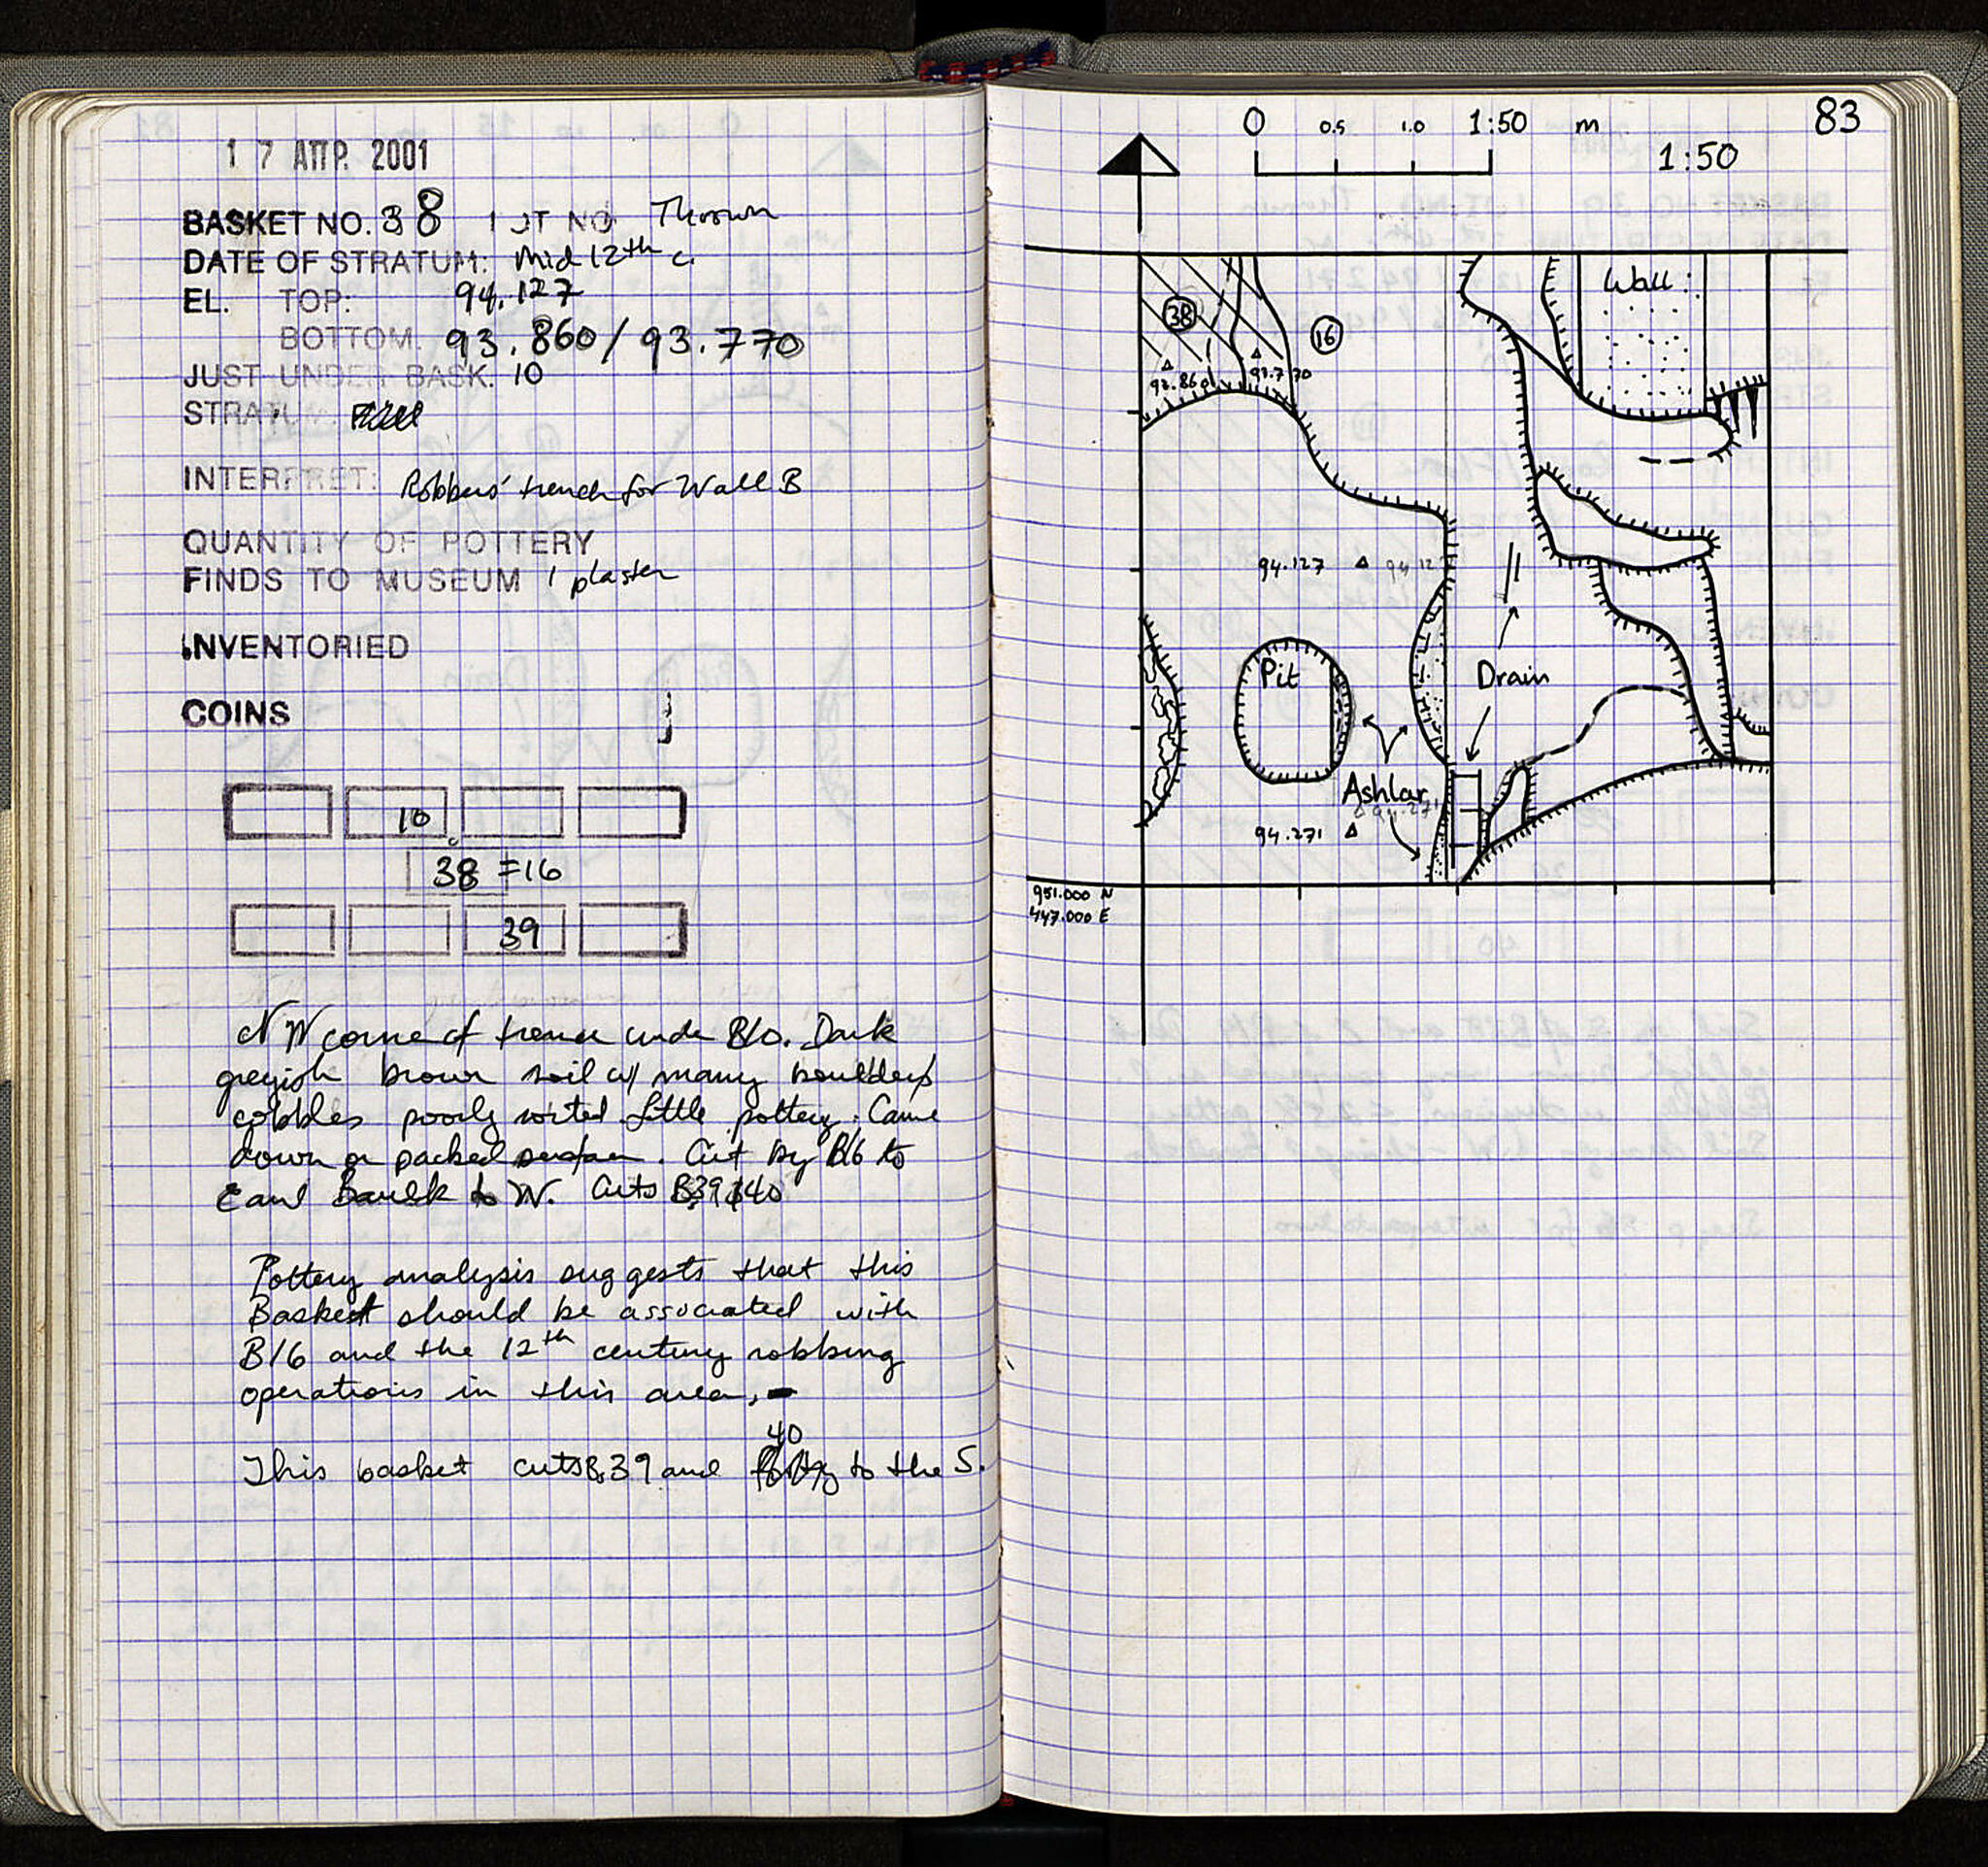 1 7 ΑΠΡ. 2001
BASKET NO. 38 LOT NO Thrown
DATE OF STRATUM: Mid 12th c.
EL. TOP: 94.127
BOTTOM. 93.860/93.770
JUST UNDER BASK. 10
STRATUM:
INTERPRET: Robbers' trench for Wall B
QUANTITY OF POTTERY
FINDS TO MUSEUM 1 plaster
INVENTORIED
COINS
10
38 =16
39
NW corner of trench under B10. Dark
greyish brown soil w/ many boulders
cobbles poorly sorted little pottery. Came
down on packed surface. Cut by B16 to
E and Baulk to W. Cuts B39 &40
Pottery analysis suggests that this
Basket should be associated with
B16 and the 12th century robbing
operations in this area.
This basket cuts B39 and 40 to the S.
83
0 0.5 1.0 1:50 m
1:50
Wall
38
16
93.860
93.770
94.127
94 12
Pit
Drain
Ashlar
94.271
94.271
951.000 N
447.000 E